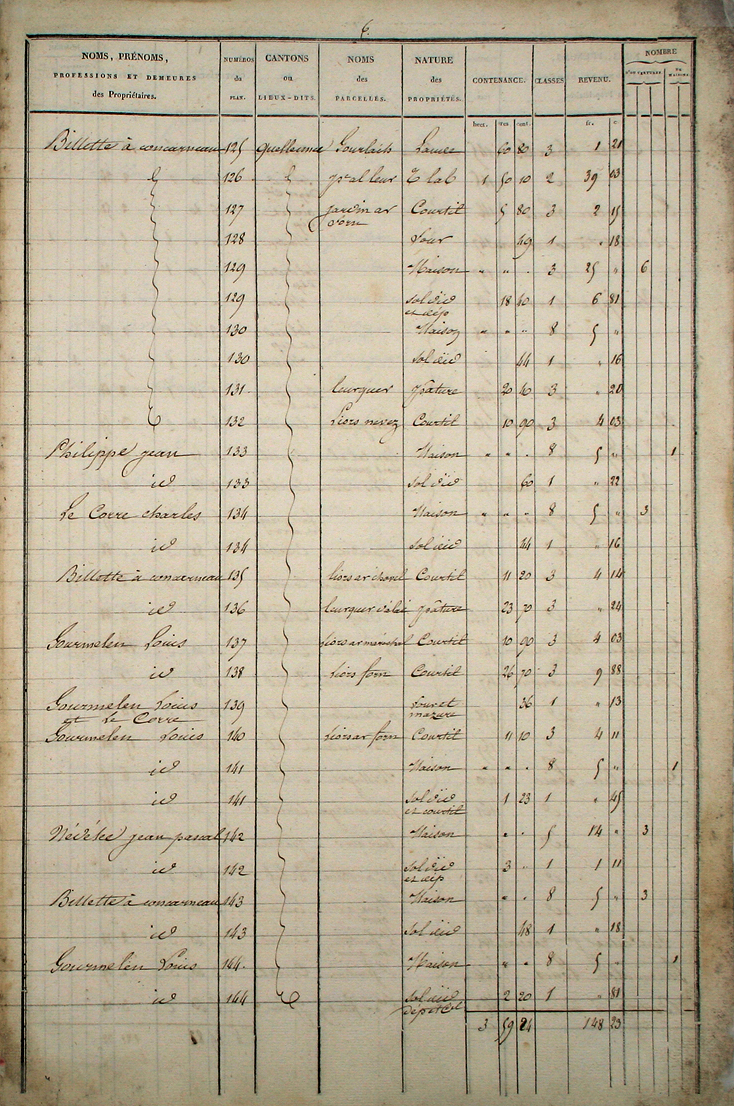 6.
NOMS, PRÉNOMS, PROFESSIONS ET DEMEURES des Propriétaires. NUMÉROS du PLAN. CANTONS ou LIEUX-DITS. NOMS des PARCELLES. NATURE des PROPRIÉTÉS. CONTENANCE. CLASSES REVENU. NOMBRE
hect. ares cent. fr. c
Billette à concarneau 125 Gourlaih Lande 60 80 3 1 21
126 1 50 10 2 39 03
127 jardin ar forn Courtil 5 80 3 2 15
128 four 49 1 " 18
129 Maison " " . 3 25 " 6
129 sol d'id et dép 18 40 1 6 81
130 Maison " " " 8 5 "
130 sol d'id 44 1 " 16
131 leurguer pâture 20 40 3 " 20
132 Liors nevez Courtil 10 90 3 4 03
Philippe jean 133 Maison " " . 8 5 " 1
id 133 sol d'id 60 1 " 22
Le Corre charles 134 Maison " " " 8 5 " 3
id 134 sol d'id 44 1 " 16
Billette à concarneau 135 Courtil 11 20 3 4 14
id 136 pâture 23 70 3 " 24
Gourmelen Louis 137 Courtil 10 90 3 4 03
id 138 Liors forn Courtil 26 70 3 9 88
Gourmelen Louis et Le Corre 139 four et mazure 36 1 " 13
Gourmelen Louis 140 Liors ar forn Courtil 11 10 3 4 11
id 141 Maison " " . 8 5 " 1
id 141 sol d'id et courtil 1 23 1 " 45
jean pascal 142 Maison " . 5 14 " 3
id 142 sol d'id et dép 3 " 1 1 11
Billette à concarneau 143 Maison " . 8 5 " 3
id 143 sol d'id 48 1 " 18
Gourmelen Louis 144. Maison " " 8 5 " 1
id 144 sol d'id 2 20 1 " 81
3 59 24 148 23